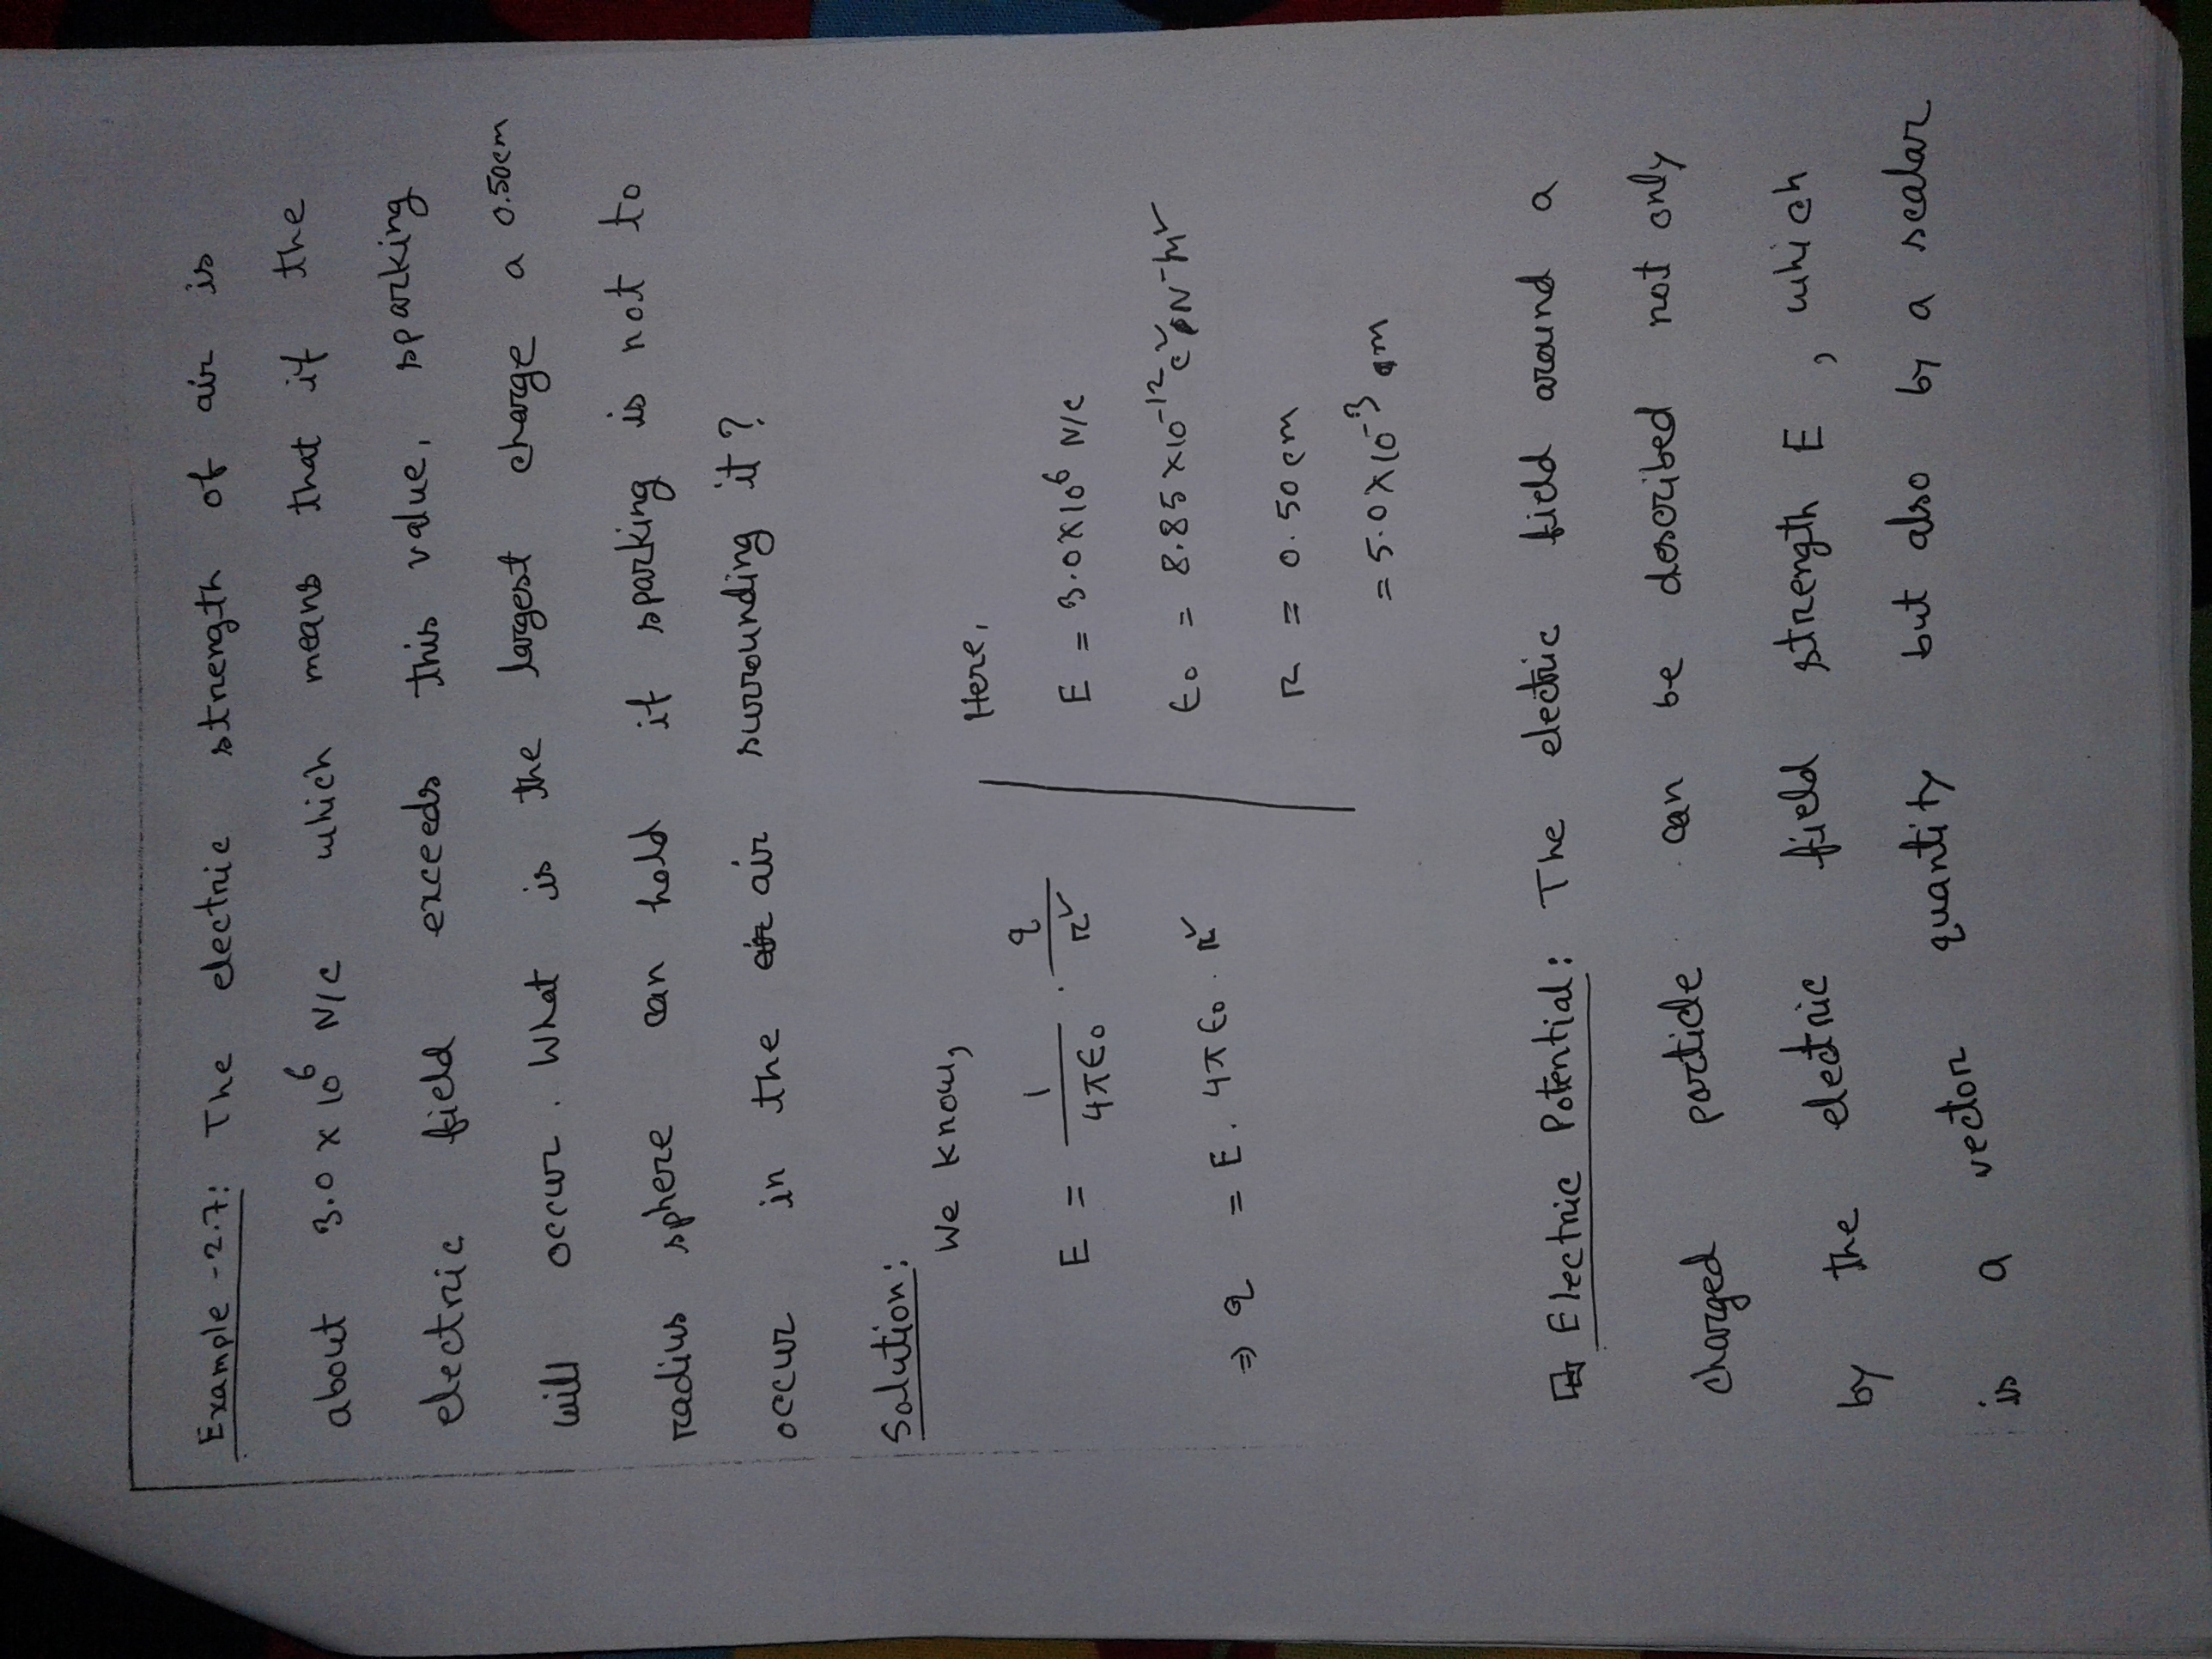 Example -2.7: The electric strength of air is
about 3.0 x 10⁶ N/C which means that if the
electric field exceeds this value, sparking
will occur. What is the largest charge a 0.50cm
radius sphere can hold if sparking is not to
occur in the air surrounding it?
Solution:
We know,
E = 1/4πϵ₀ . q/r²
⇒ q = E. 4πϵ₀ . r²
Here,
E = 3.0x10⁶ N/C
ϵ₀ = 8.85 x10⁻¹² C² N⁻ M²
r = 0.50 cm
= 5.0x10⁻³ m
Electric Potential: The electric field around a
charged particle can be described not only
by the electric field strength E, which
is a vector quantity but also by a scalar